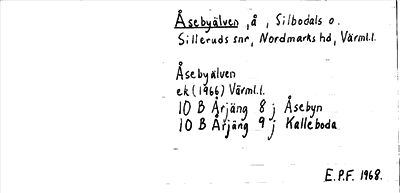 Åsebyälven, å, Silbodals o.
Silleruds snr, Nordmarks hd, Värml.l.
Åsebyälven
ek (1966) Värml.l.
10 B Årjäng 8 j Åsebyn
10 B Årjäng 9 j Kalleboda
E.P.F. 1968.